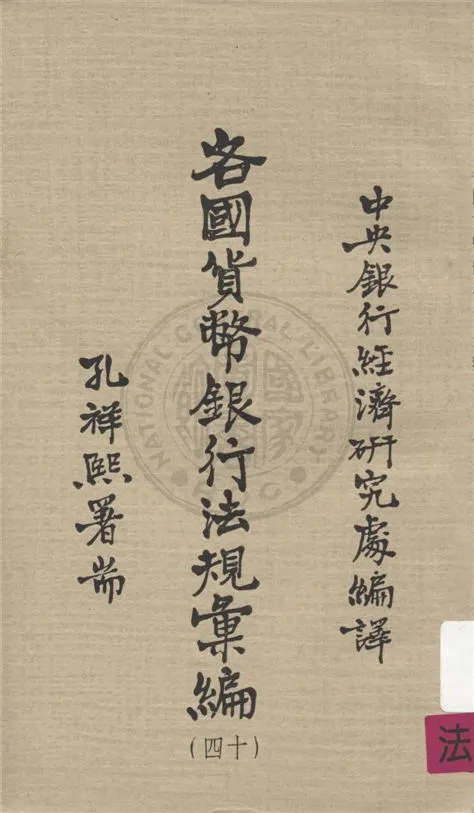 中央銀行經濟研究處編譯
各國貨幣銀行法規彙編
(四十)
孔祥熙署耑
NATIONAL CENTRAL LIBRARY
法